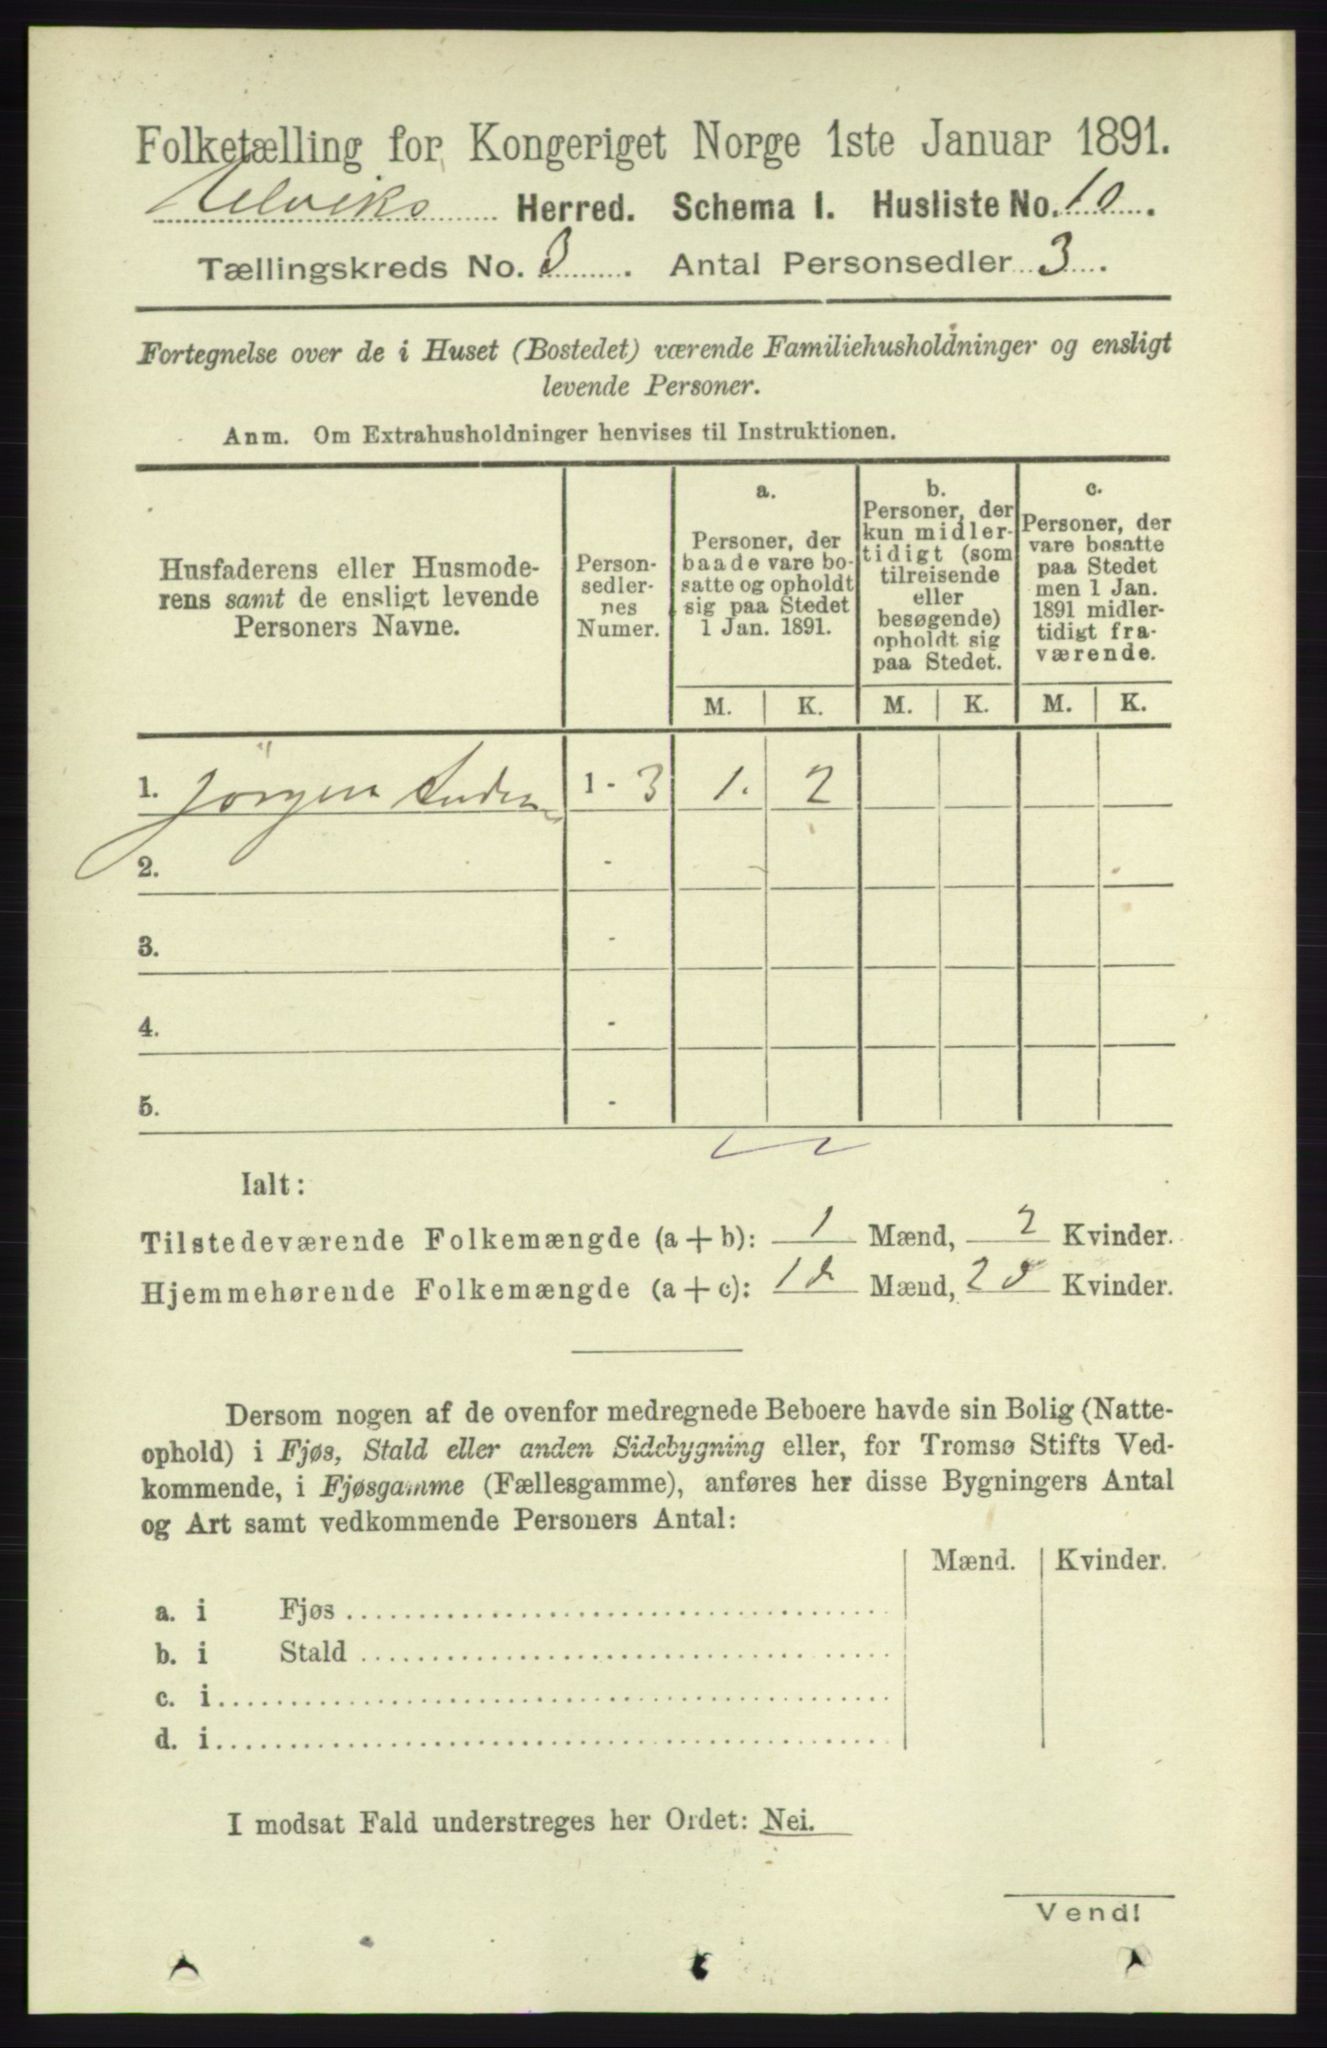 Folketælling for Kongeriget Norge 1ste Januar 1891.
Ulviks Herred. Schema I. Husliste No. 10.
Tællingskreds No. 3. Antal Personsedler 3.
Fortegnelse over de i Huset (Bostedet) værende Familiehusholdninger og ensligt
levende Personer.
Anm. Om Extrahusholdninger henvises til Instruktionen.
Husfaderens eller Husmode-
rens samt de ensligt levende
Personers Navne.
Person-
sedler-
nes
Numer.
a.
Personer, der
baade vare bo-
satte og opholdt
sig paa Stedet
1 Jan. 1891.
b.
Personer, der
kun midler-
tidigt (som
tilreisende
eller
besøgende)
opholdt sig
paa Stedet.
c.
Personer, der
vare bosatte
paa Stedet
men 1 Jan.
1891 midler-
tidigt fra-
værende.
M. K. M. K. M. K.
1. Jörgen 1 - 3 1. 2
2. -
3. -
4. -
5. -
Ialt:
Tilstedeværende Folkemængde (a + b): 1 Mænd, 2 Kvinder.
Hjemmehørende Folkemængde (a + c): 1 d Mænd, 2 d Kvinder.
Dersom nogen af de ovenfor medregnede Beboere havde sin Bolig (Natte-
ophold) i Fjøs, Stald eller anden Sidebygning eller, for Tromsø Stifts Ved-
kommende, i Fjøsgamme (Fællesgamme), anføres her disse Bygningers Antal
og Art samt vedkommende Personers Antal:
Mænd. Kvinder.
a. i Fjøs
b. i Stald
c. i
d. i
I modsat Fald understreges her Ordet: Nei.
Vend!